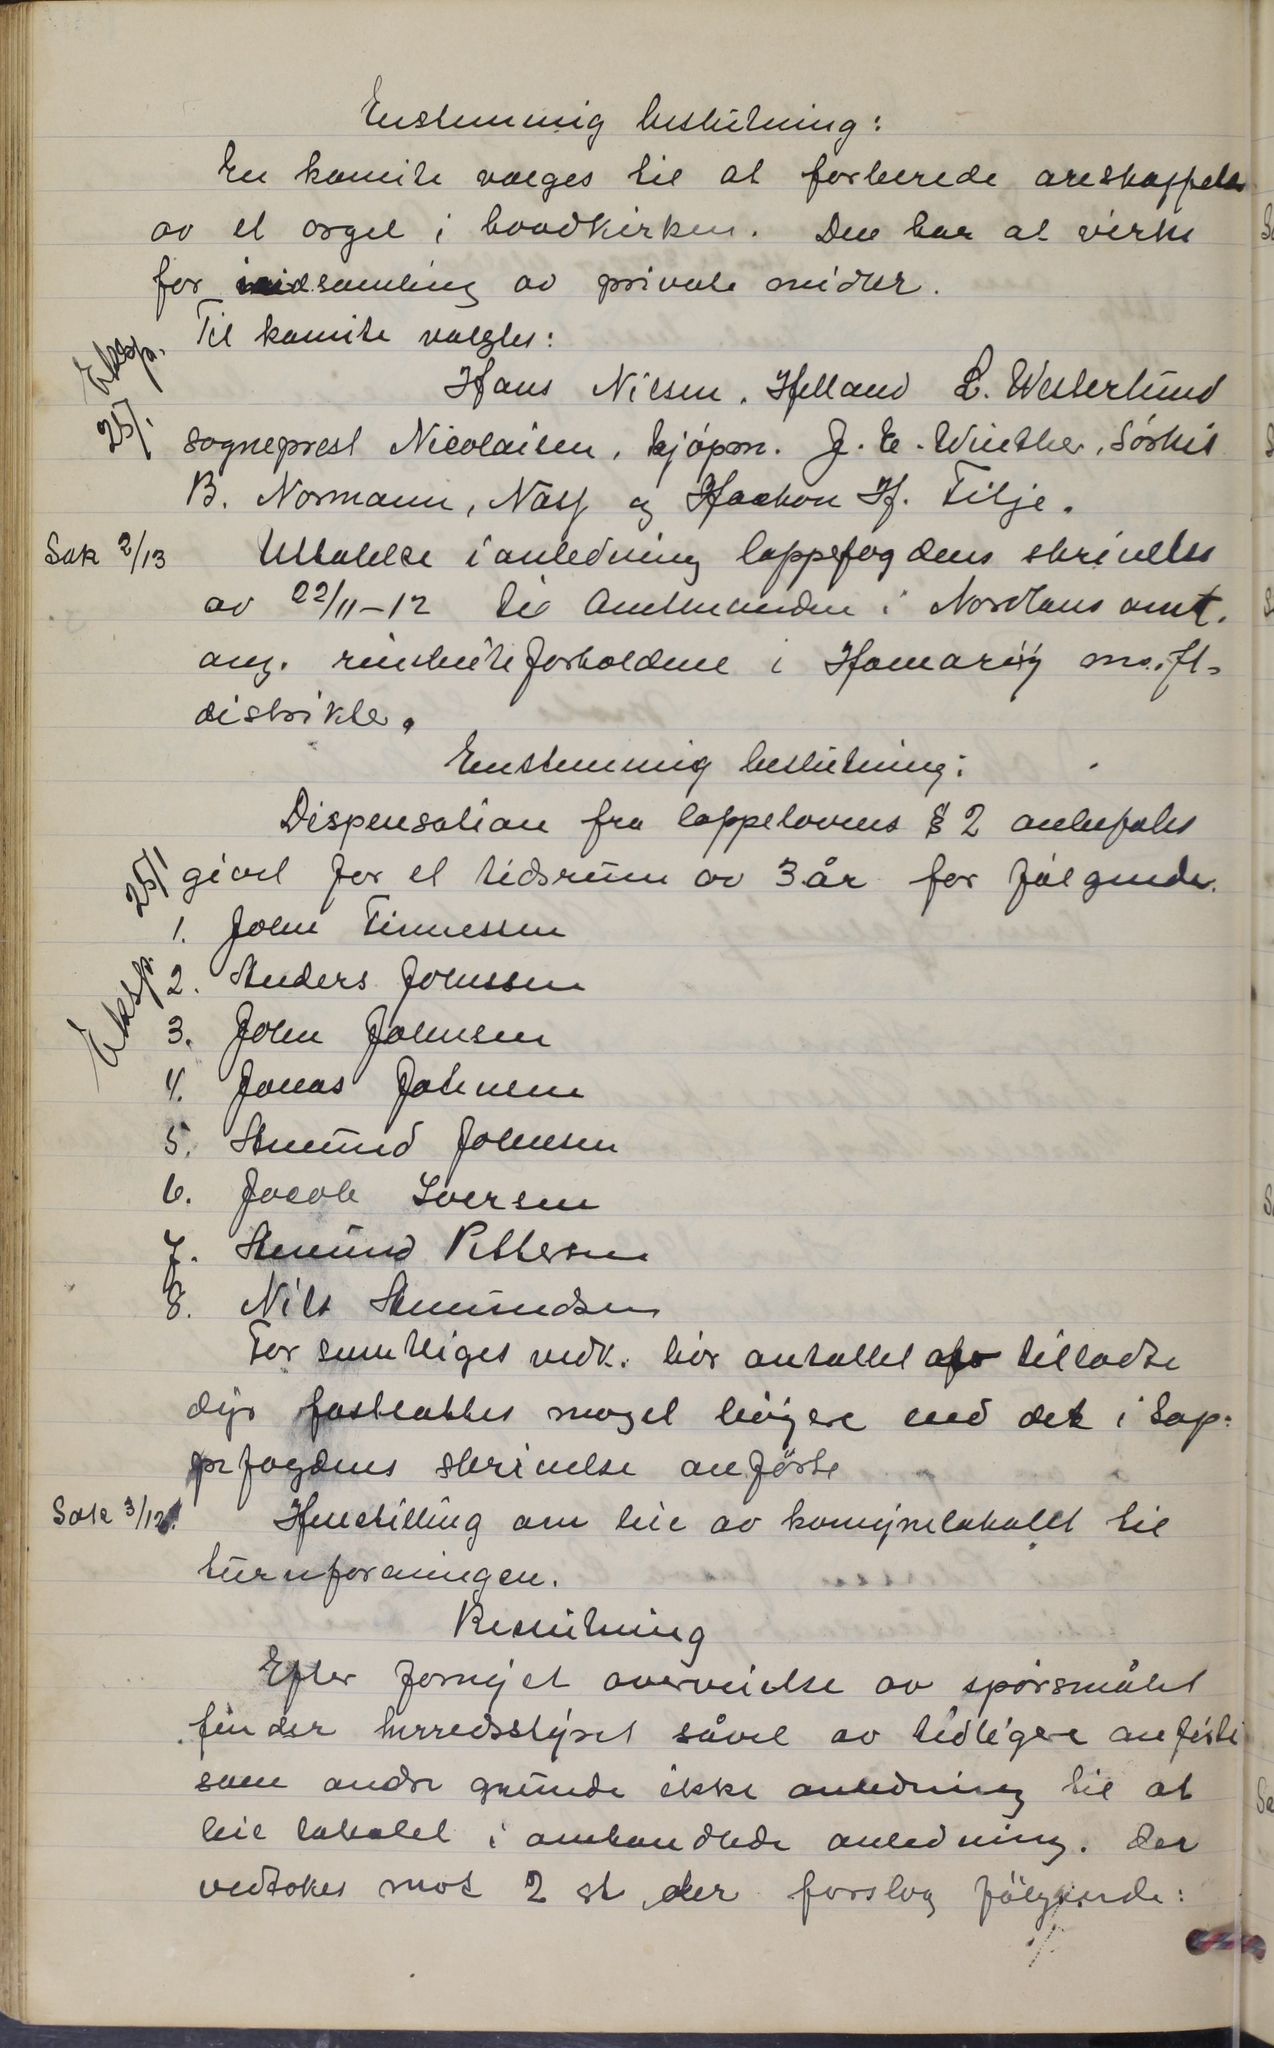 Enstemmig beslutning:
En komite vælges til at forberede anskaffelse
av et orgel i hovedkirken. Den har at virke
for indsamling av private midler.
Til komite valgtes:
Eksp. 25/1
Hans Nilsen, Helland L. Westerlund
sogneprest Nicolaisen, kjøpm. J. E. Winther, Sørkil
B. Normann, Næss og Haakon H. Tilje.
Sak 2/13 Uttalelse i anledning lappefogdens skrivelse
av 22/11-12 til Amtmanden i Nordlans amt.
ang. reinbeiteforholdene i Hamarøy m. fl.
distrikter.
Enstemmig beslutning:
Dispensation fra lappelovens § 2 anbefales
givet for et tidsrum av 3 år for følgende.
Eksp. 25/1
1. John Finnessen
2. Anders Johnssen
3. John Johnsen
4. Jonas Johnsen
5. Amund Johnsen
6. Jacob Iversen
7. Amund Pettersen
8. Nils Amundsen
For samtliges vedk. bør antallet av tilladte
dyr fastsættes meget høiere end det i lap-
pefogdens skrivelse anførte
Sak 3/13. Henstilling om leie av kommunelokalet til
turnforeningen.
Beslutning
Efter fornyet overveielse av spørsmålet
finder herredsstyret såvel av tidligere anførte
som andre grunde ikke anledning til at
leie lokalet i omhandlede anledning. Der
vedtokes mot 2 st. der forslog følgende: